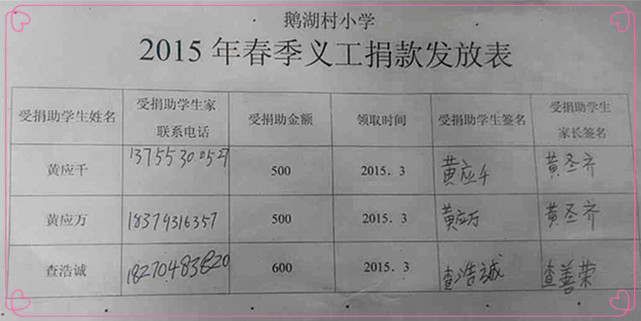 鹅湖村小学
2015 年春季义工捐款发放表
受捐助学生姓名 受捐助学生家联系电话 受捐助金额 领取时间 受捐助学生签名 受捐助学生家长签名
黄应千 13755300527 500 2015.3 黄应千 黄圣齐
黄应万 18379316357 500 2015.3 黄应万 黄圣齐
查浩诚 18270483820 600 2015.3 查浩诚 查善荣